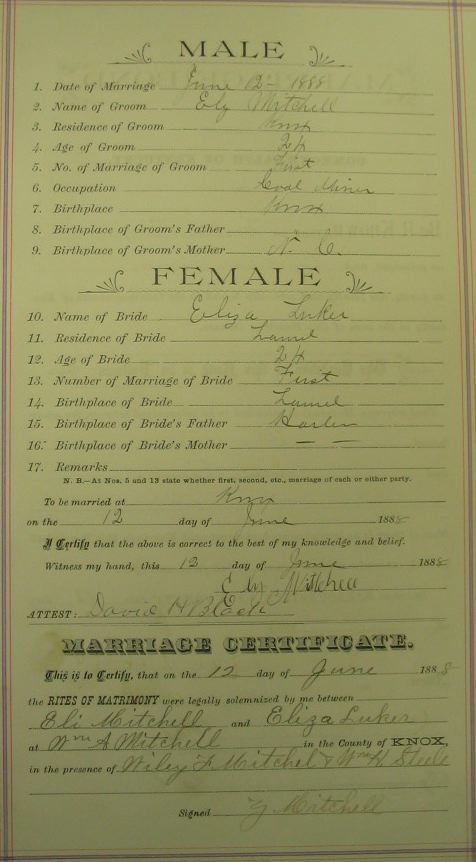 MALE
1. Date of Marriage June 12 - 1888
2. Name of Groom Ely Mitchell
3. Residence of Groom Knox
4. Age of Groom 24
5. No. of Marriage of Groom First
6. Occupation Coal Miner
7. Birthplace Knox
8. Birthplace of Groom's Father
9. Birthplace of Groom's Mother N. C.
FEMALE
10. Name of Bride Eliza Luker
11. Residence of Bride Laurel
12. Age of Bride 24
13. Number of Marriage of Bride First
14. Birthplace of Bride Laurel
15. Birthplace of Bride's Father Harlan
16. Birthplace of Bride's Mother — —
17. Remarks
N. B.—At Nos. 5 and 13 state whether first, second, etc., marriage of each or either party.
To be married at Knox
on the 12 day of June 1888
I Certify that the above is correct to the best of my knowledge and belief.
Witness my hand, this 12 day of June 1888
Ely Mitchell
ATTEST: David H
MARRIAGE CERTIFICATE.
This is to Certify, that on the 12 day of June 1888
the RITES OF MATRIMONY were legally solemnized by me between
Eli Mitchell and Eliza Luker
at Wm A Mitchell in the County of KNOX,
in the presence of Wiley F Mitchel & Wm H Steele
Signed Mitchell